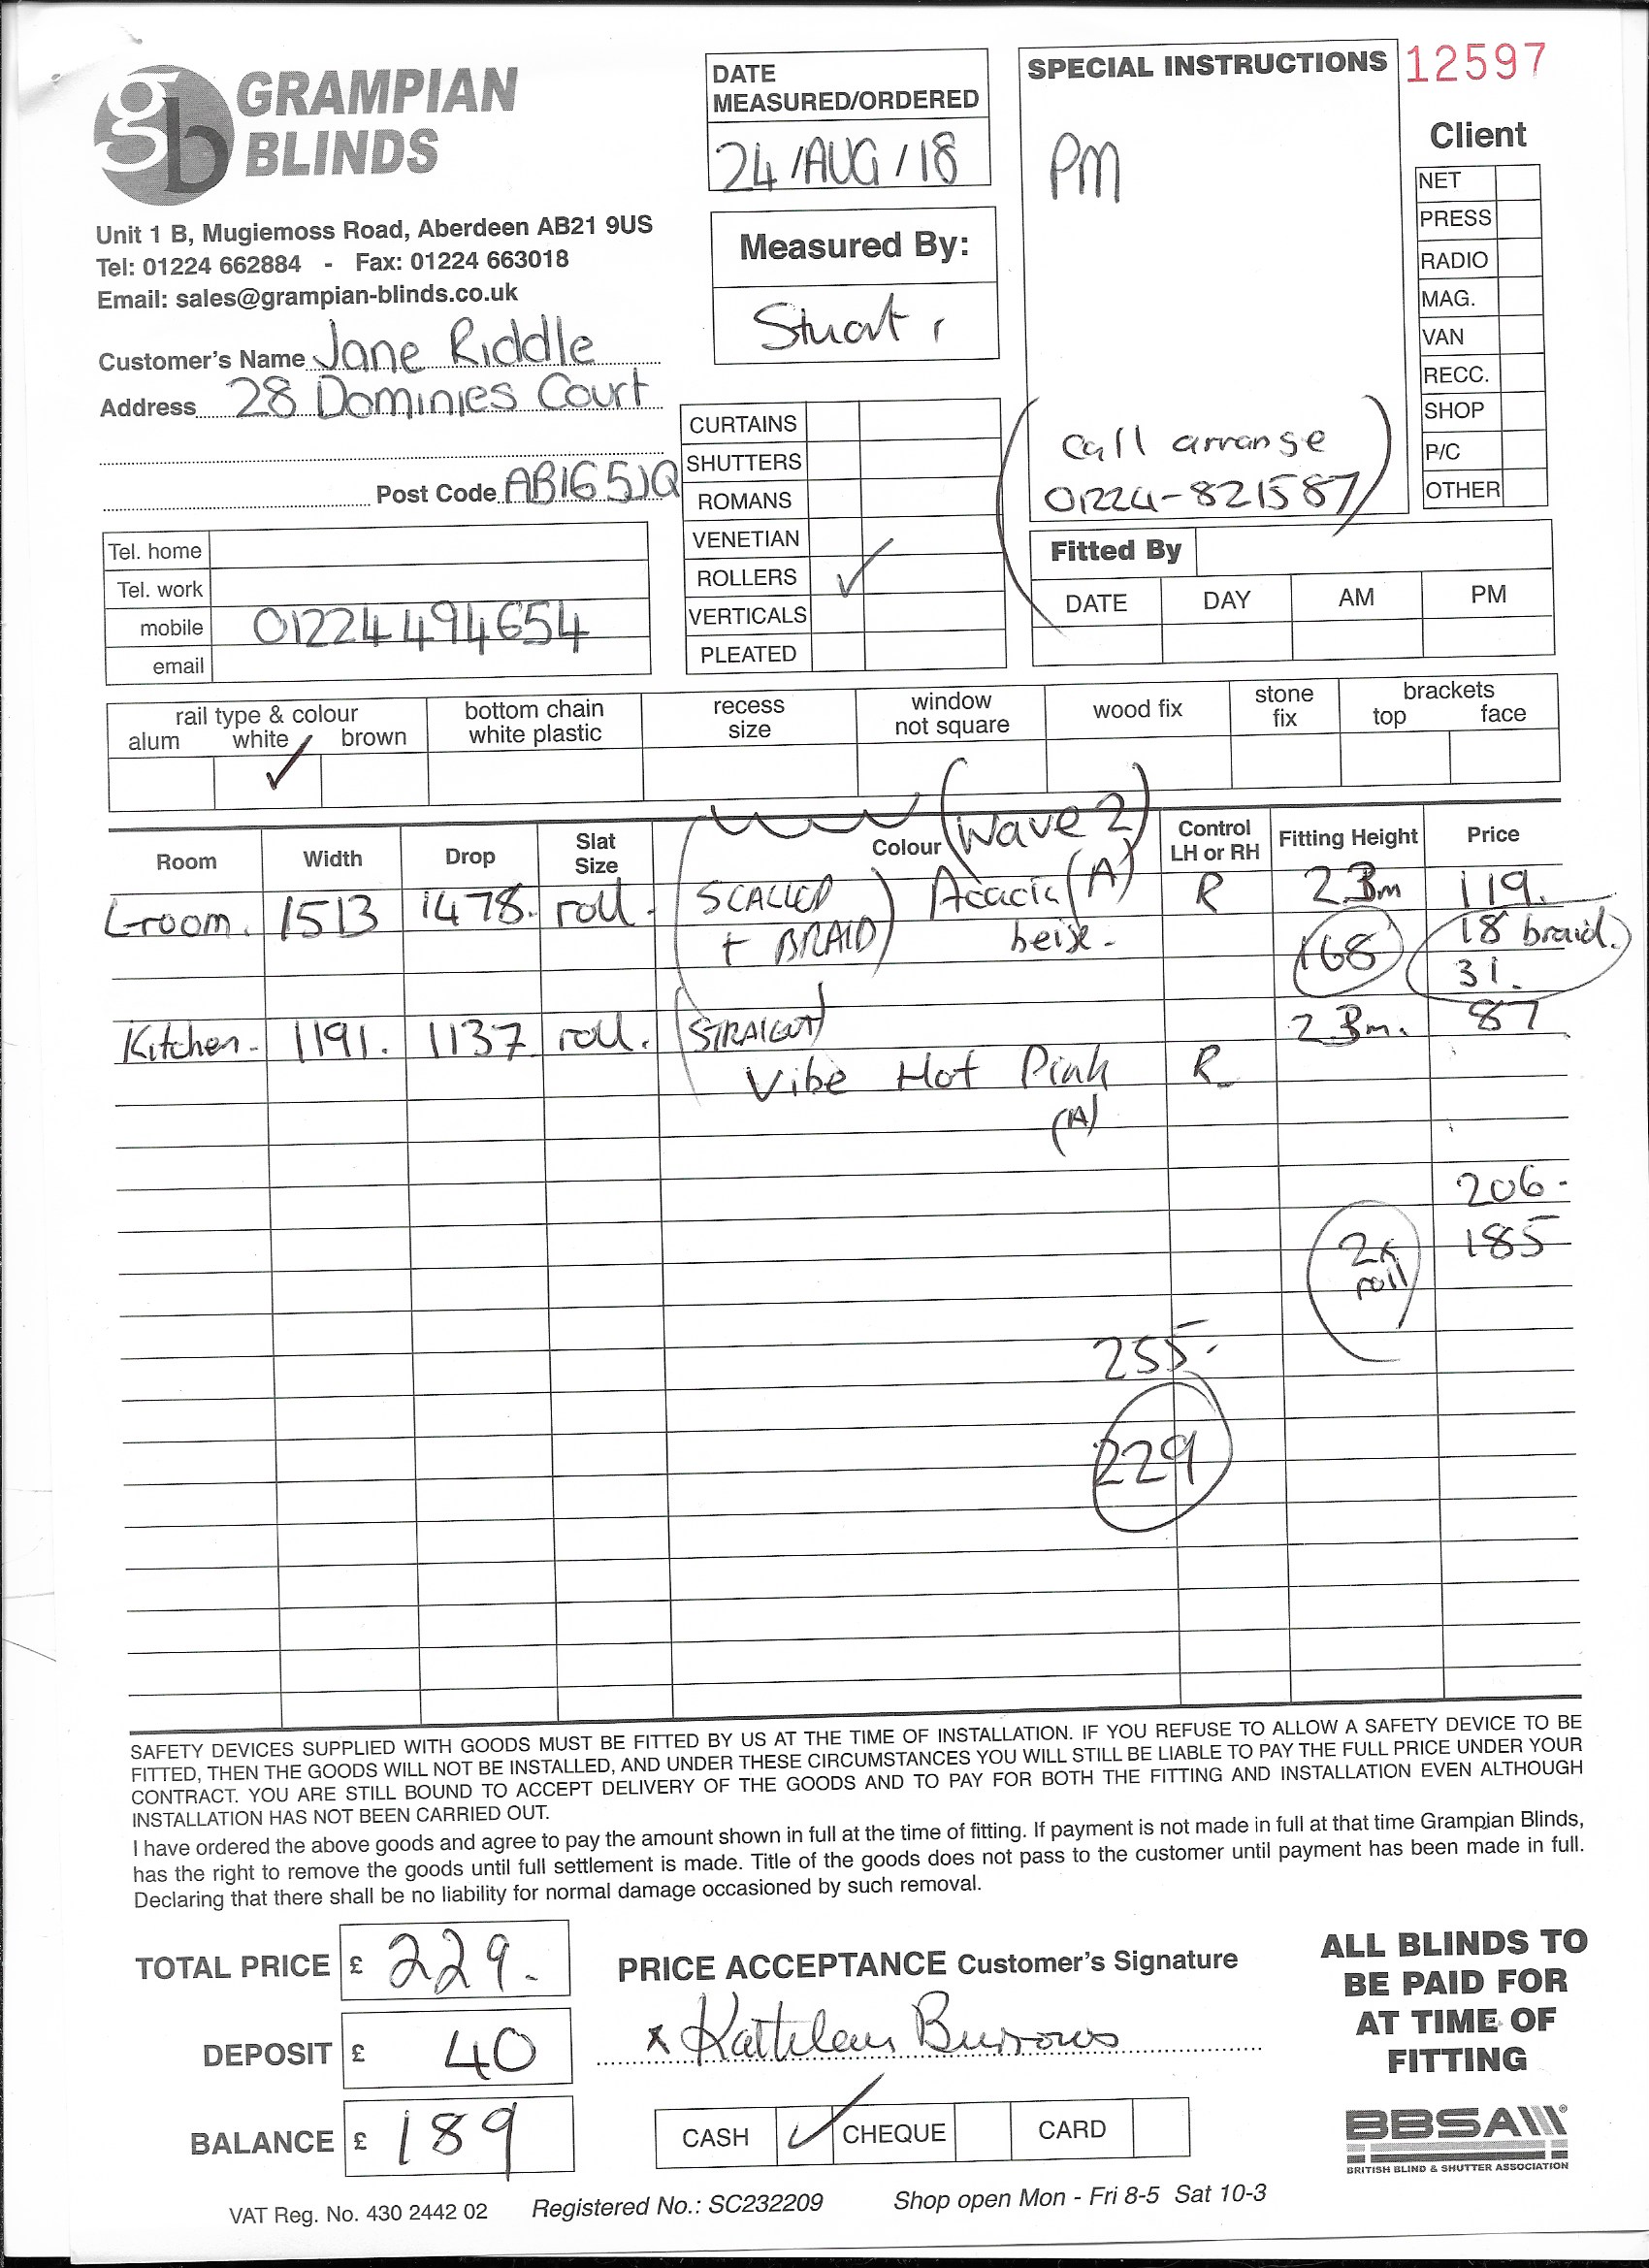 GRAMPIAN
BLINDS
gb
Unit 1 B, Mugiemoss Road, Aberdeen AB21 9US
Tel: 01224 662884 - Fax: 01224 663018
Email: sales@grampian-blinds.co.uk
Customer's Name Jane Riddle
Address 28 Dominies Court
Post Code AB16 5JQ
Tel. home
Tel. work
mobile 01224 494654
email
DATE
MEASURED/ORDERED
24/AUG/18
Measured By:
Stuart
CURTAINS
SHUTTERS
ROMANS
VENETIAN
ROLLERS ✓
VERTICALS
PLEATED
SPECIAL INSTRUCTIONS
PM
(Call arrange
01224-821587)
Fitted By
DATE DAY AM PM
12597
Client
NET
PRESS
RADIO
MAG.
VAN
RECC.
SHOP
P/C
OTHER
rail type & colour
alum white brown
✓
bottom chain
white plastic
recess
size
window
not square
wood fix
stone
fix
brackets
top face
Room Width Drop Slat Size Colour (Wave 2) Control LH or RH Fitting Height Price
L-room. 1513 1478. roll. (SCALLED Acacia (A) R 2.3m 119.
+ BRAID) beix. 168 18 braid.
31.
Kitchen. 1191. 1137 roll. (STRAIGHT) 2.3m. 87
Vibe Hot Pink R
(A)
206.
2x 185
roll
255.
229
SAFETY DEVICES SUPPLIED WITH GOODS MUST BE FITTED BY US AT THE TIME OF INSTALLATION. IF YOU REFUSE TO ALLOW A SAFETY DEVICE TO BE
FITTED, THEN THE GOODS WILL NOT BE INSTALLED, AND UNDER THESE CIRCUMSTANCES YOU WILL STILL BE LIABLE TO PAY THE FULL PRICE UNDER YOUR
CONTRACT. YOU ARE STILL BOUND TO ACCEPT DELIVERY OF THE GOODS AND TO PAY FOR BOTH THE FITTING AND INSTALLATION EVEN ALTHOUGH
INSTALLATION HAS NOT BEEN CARRIED OUT.
I have ordered the above goods and agree to pay the amount shown in full at the time of fitting. If payment is not made in full at that time Grampian Blinds,
has the right to remove the goods until full settlement is made. Title of the goods does not pass to the customer until payment has been made in full.
Declaring that there shall be no liability for normal damage occasioned by such removal.
TOTAL PRICE £ 229.
DEPOSIT £ 40
BALANCE £ 189
PRICE ACCEPTANCE Customer's Signature
x Kathleen Burrows
CASH ✓ CHEQUE CARD
ALL BLINDS TO
BE PAID FOR
AT TIME OF
FITTING
BBSA
BRITISH BLIND & SHUTTER ASSOCIATION
VAT Reg. No. 430 2442 02 Registered No.: SC232209 Shop open Mon - Fri 8-5 Sat 10-3